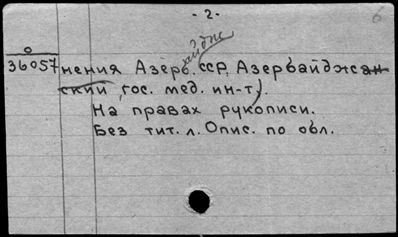 - 2. -
6
айджс
0
36057 нения Азерб. ССР, Азербайджан
ский гос. мед. ин-т).
На правах рукописи.
Без тит. л. Опис. по обл.